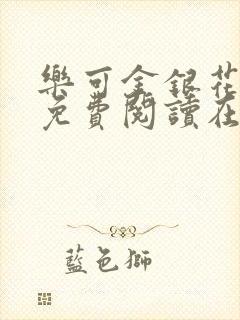 樂可金銀花
免費閱讀在
藍色獅